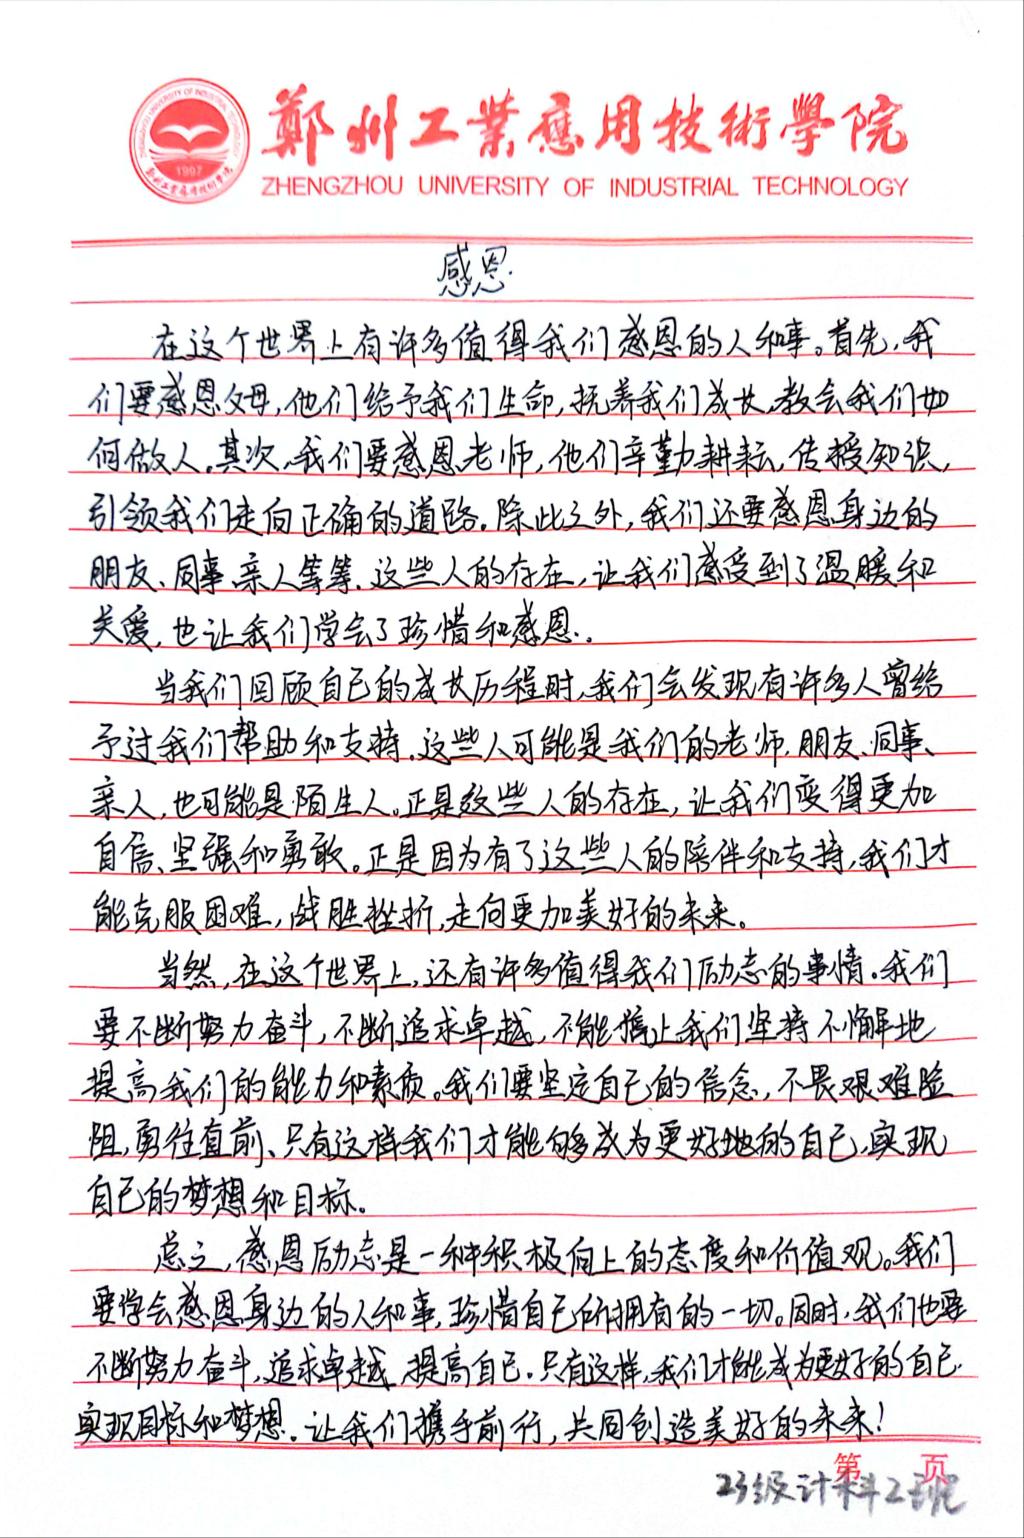 鄭州工業應用技術學院
ZHENGZHOU UNIVERSITY OF INDUSTRIAL TECHNOLOGY
ZHENGZHOU UNIVERSITY OF INDUSTRIAL TECHNOLOGY
1997
鄭州工業應用技術學院
感恩
在这个世界上有许多值得我们感恩的人和事。首先,我
们要感恩父母,他们给予我们生命,抚养我们成长,教会我们如
何做人。其次,我们要感恩老师,他们辛勤耕耘,传授知识,
引领我们走向正确的道路。除此之外,我们还要感恩身边的
朋友、同事、亲人等等.这些人的存在,让我们感受到了温暖和
关爱,也让我们学会了珍惜和感恩。
当我们回顾自己的成长历程时,我们会发现有许多人曾给
予过我们帮助和支持.这些人可能是我们的老师,朋友、同事、
亲人,也可能是陌生人。正是这些人的存在,让我们变得更加
自信、坚强和勇敢。正是因为有了这些人的陪伴和支持,我们才
能克服困难,战胜挫折,走向更加美好的未来。
当然,在这个世界上,还有许多值得我们励志的事情。我们
要不断努力奋斗,不断追求卓越,不能停止我们坚持不懈地
提高我们的能力和素质。我们要坚定自己的信念,不畏艰难险
阻,勇往直前、只有这样我们才能够成为更好地的自己,实现
自己的梦想和目标。
总之,感恩励志是一种积极向上的态度和价值观。我们
要学会感恩身边的人和事,珍惜自己所拥有的一切。同时,我们也要
不断努力奋斗,追求卓越,提高自己.只有这样,我们才能成为更好的自己,
实现目标和梦想.让我们携手前行,共同创造美好的未来!
第 页
23级计科2班